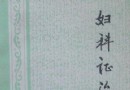 妇科证治